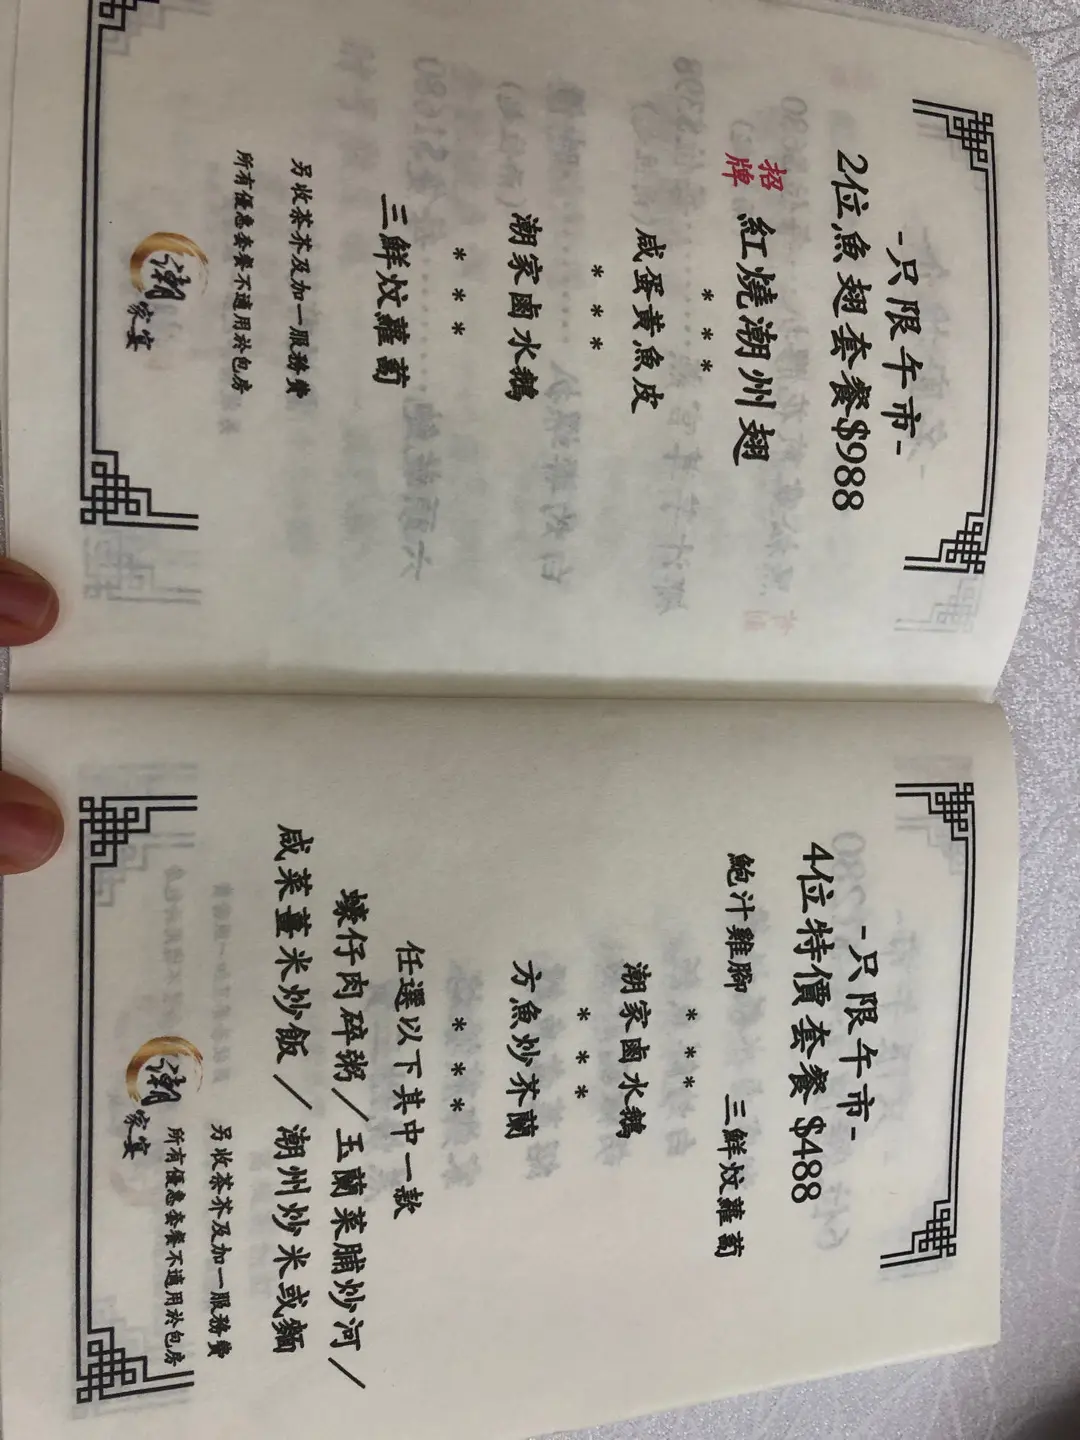 -只限午市-
2位魚翅套餐$988
招牌 紅燒潮州翅
***
咸蛋黃魚皮
***
潮家鹵水鵝
***
三鮮炆蘿蔔
另收茶芥及加一服務費
所有優惠套餐不適用於包房
潮家宴
-只限午市-
4位特價套餐 $488
鮑汁雞腳 三鮮炆蘿蔔
***
潮家鹵水鵝
***
方魚炒芥蘭
***
任選以下其中一款
蠔仔肉碎粥/玉蘭菜脯炒河/
咸菜薑米炒飯/潮州炒米或麵
另收茶芥及加一服務費
所有優惠套餐不適用於包房
潮家宴